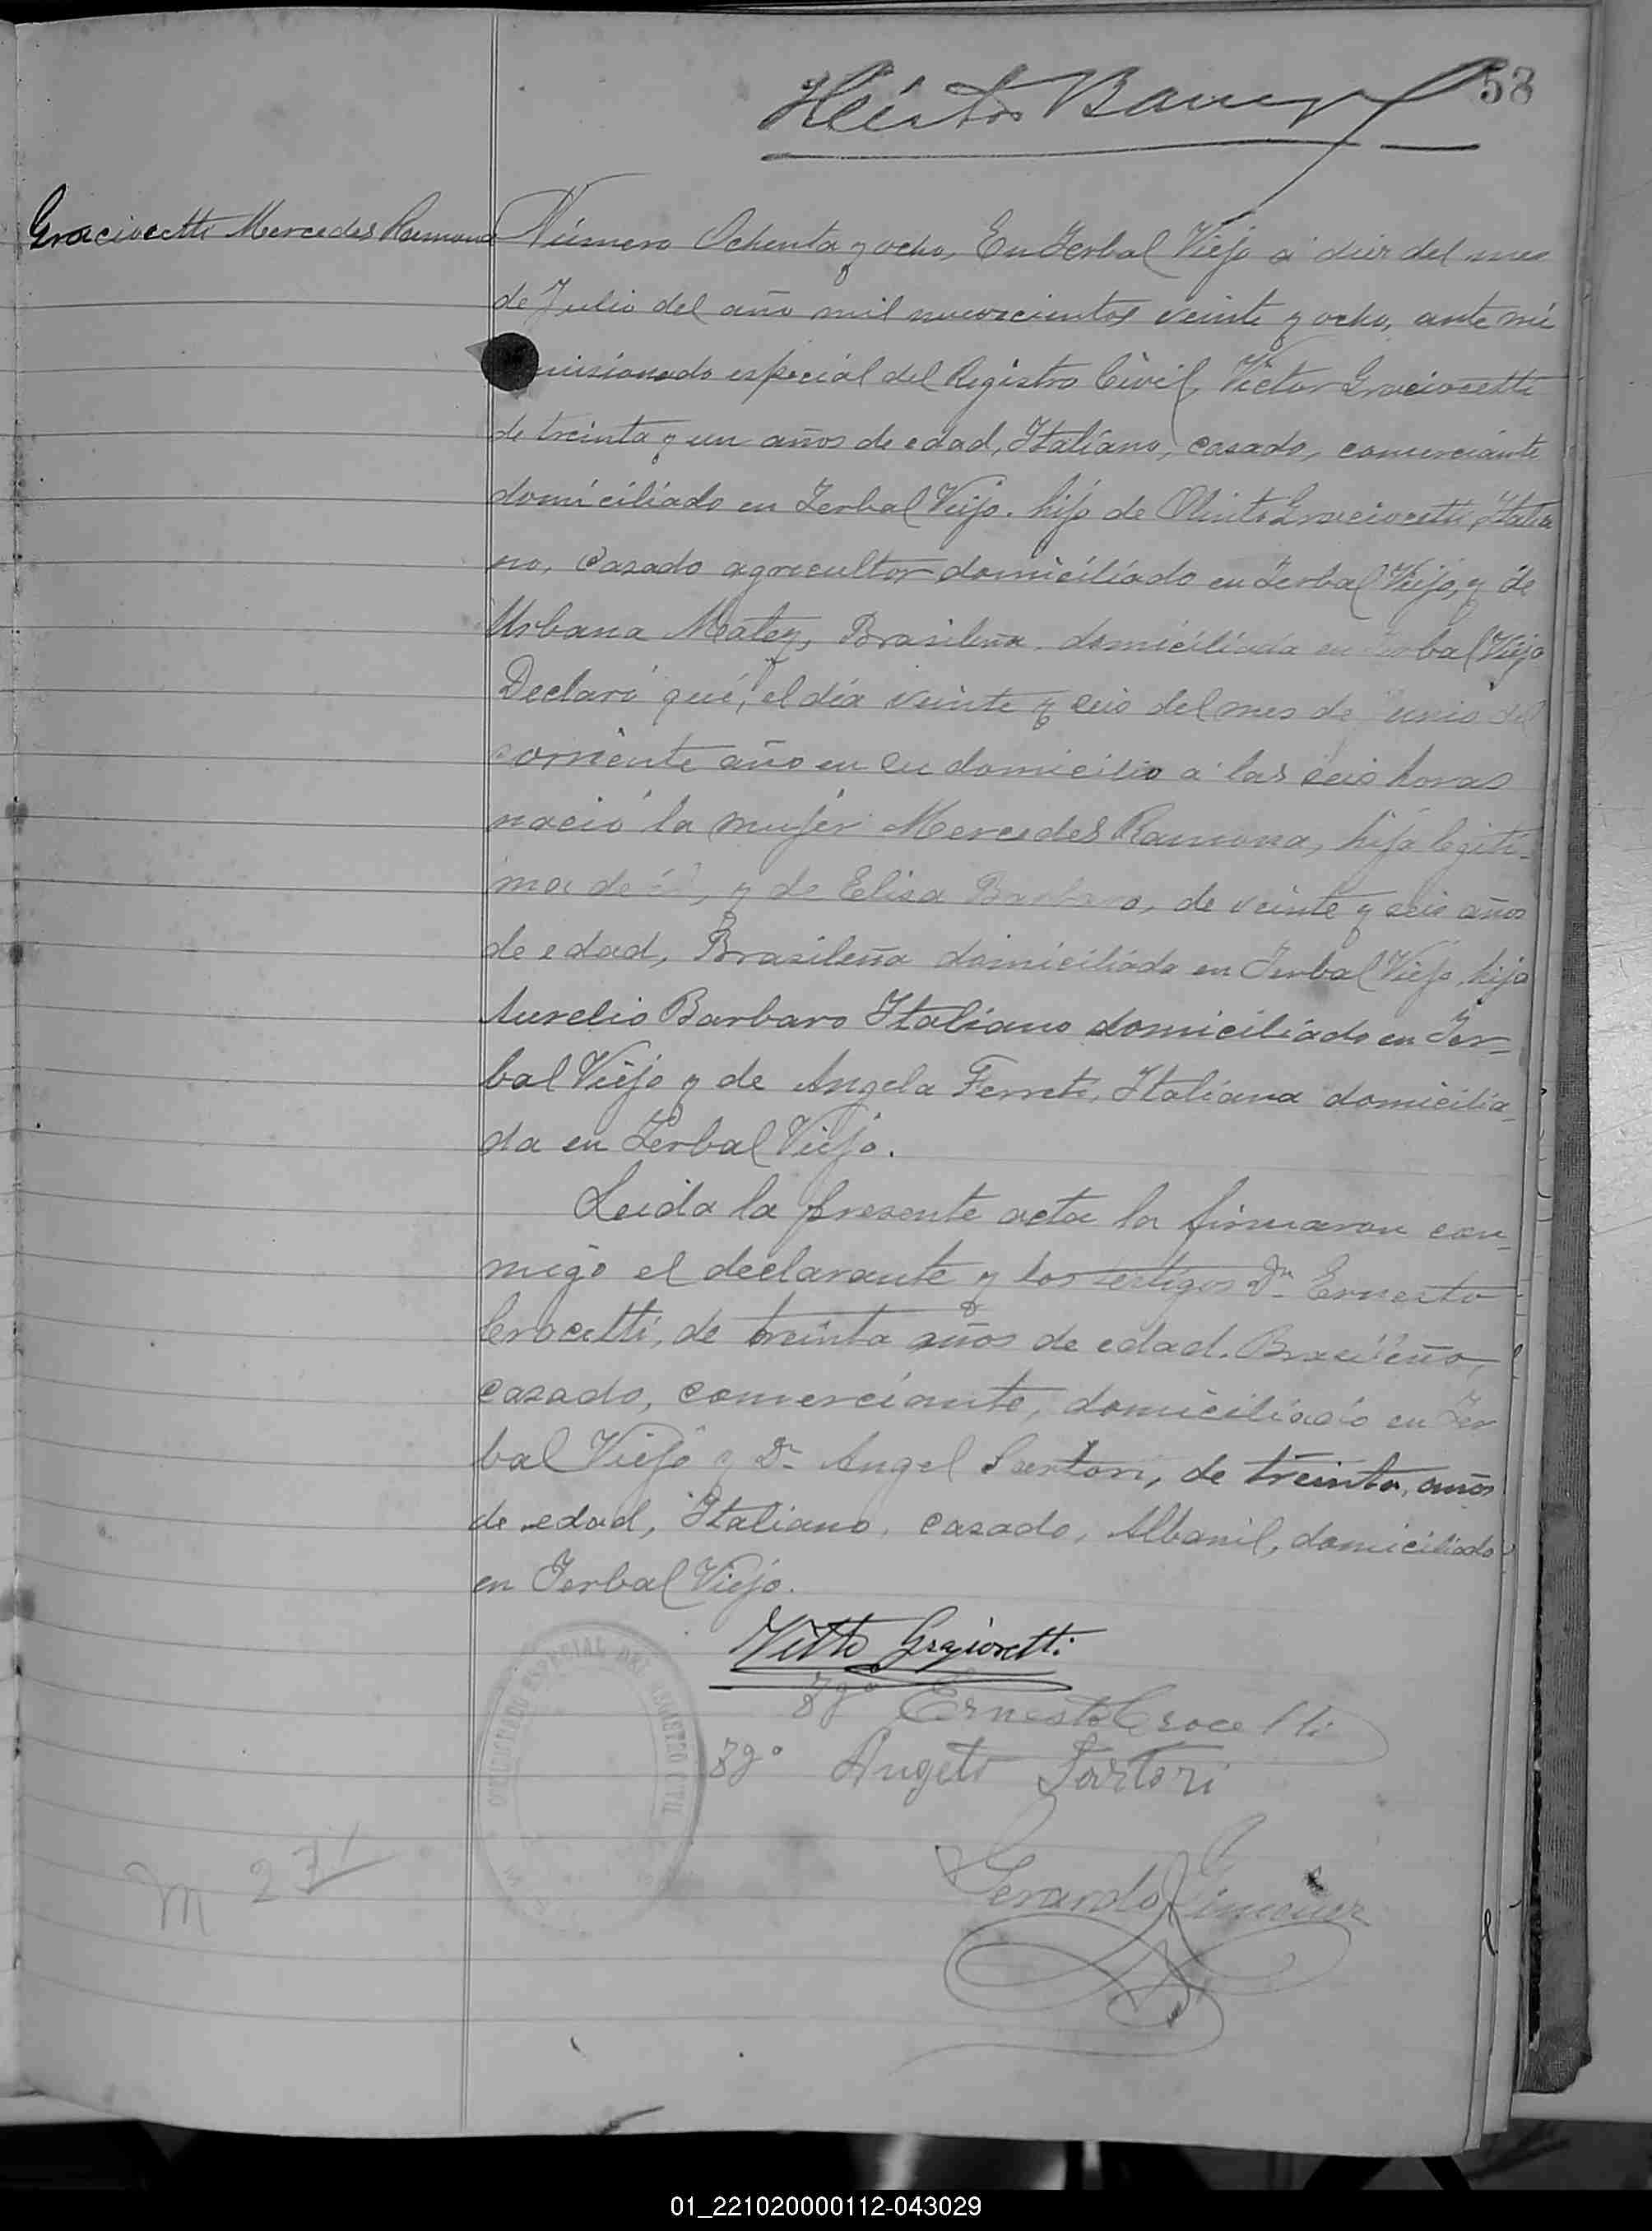 Héctor
58
Graciocetti Mercedes Ramona
Número Ochenta y ocho, En Yerbal Viejo á diez del mes
de Julio del año mil nuevecientos veinte y ocho, ante mi
misionado especial del Registro Civil, Victor Graciocetti
de treinta y un años de edad, Italiano, casado, comerciante
domiciliado en Yerbal Viejo. hijo de Olinto Graciocetti, Italia
no, Casado agricultor domiciliado en Yerbal Viejo, y de
Urbana Matey, Brasileña domiciliada en Yerbal Viejo
Declaró qué, el día veinte y seis del mes de Junio del
corriente año en su domicilio a las seis horas
nació la mujer Mercedes Ramona, hija legiti-
ma de él, y de Elisa Barbaro, de veinte y seis años
de edad, Brasileña domiciliada en Yerbal Viejo hija
Aurelio Barbaro Italiano domiciliado en Yer-
bal Viejo y de Angela Ferreti, Italiana domicilia-
da en Yerbal Viejo.
Leida la presente acta la firmaron con-
migo el declarante y los testigos Dn Ernesto
Crocetti, de treinta años de edad. Brasileño,
casado, comerciante, domiciliado en Yer
bal Viejo y Dn Angel Sartori, de treinta años
de edad, Italiano, casado, Albanil, domiciliado
en Yerbal Viejo.
Vitto Graziosetti
Tgo Ernesto Crocetti
Tgo Angelo Sartori
COMISIONADO ESPECIAL DEL REGISTRO CIVIL
Gerardo Gimenez
M 271
01_221020000112-043029